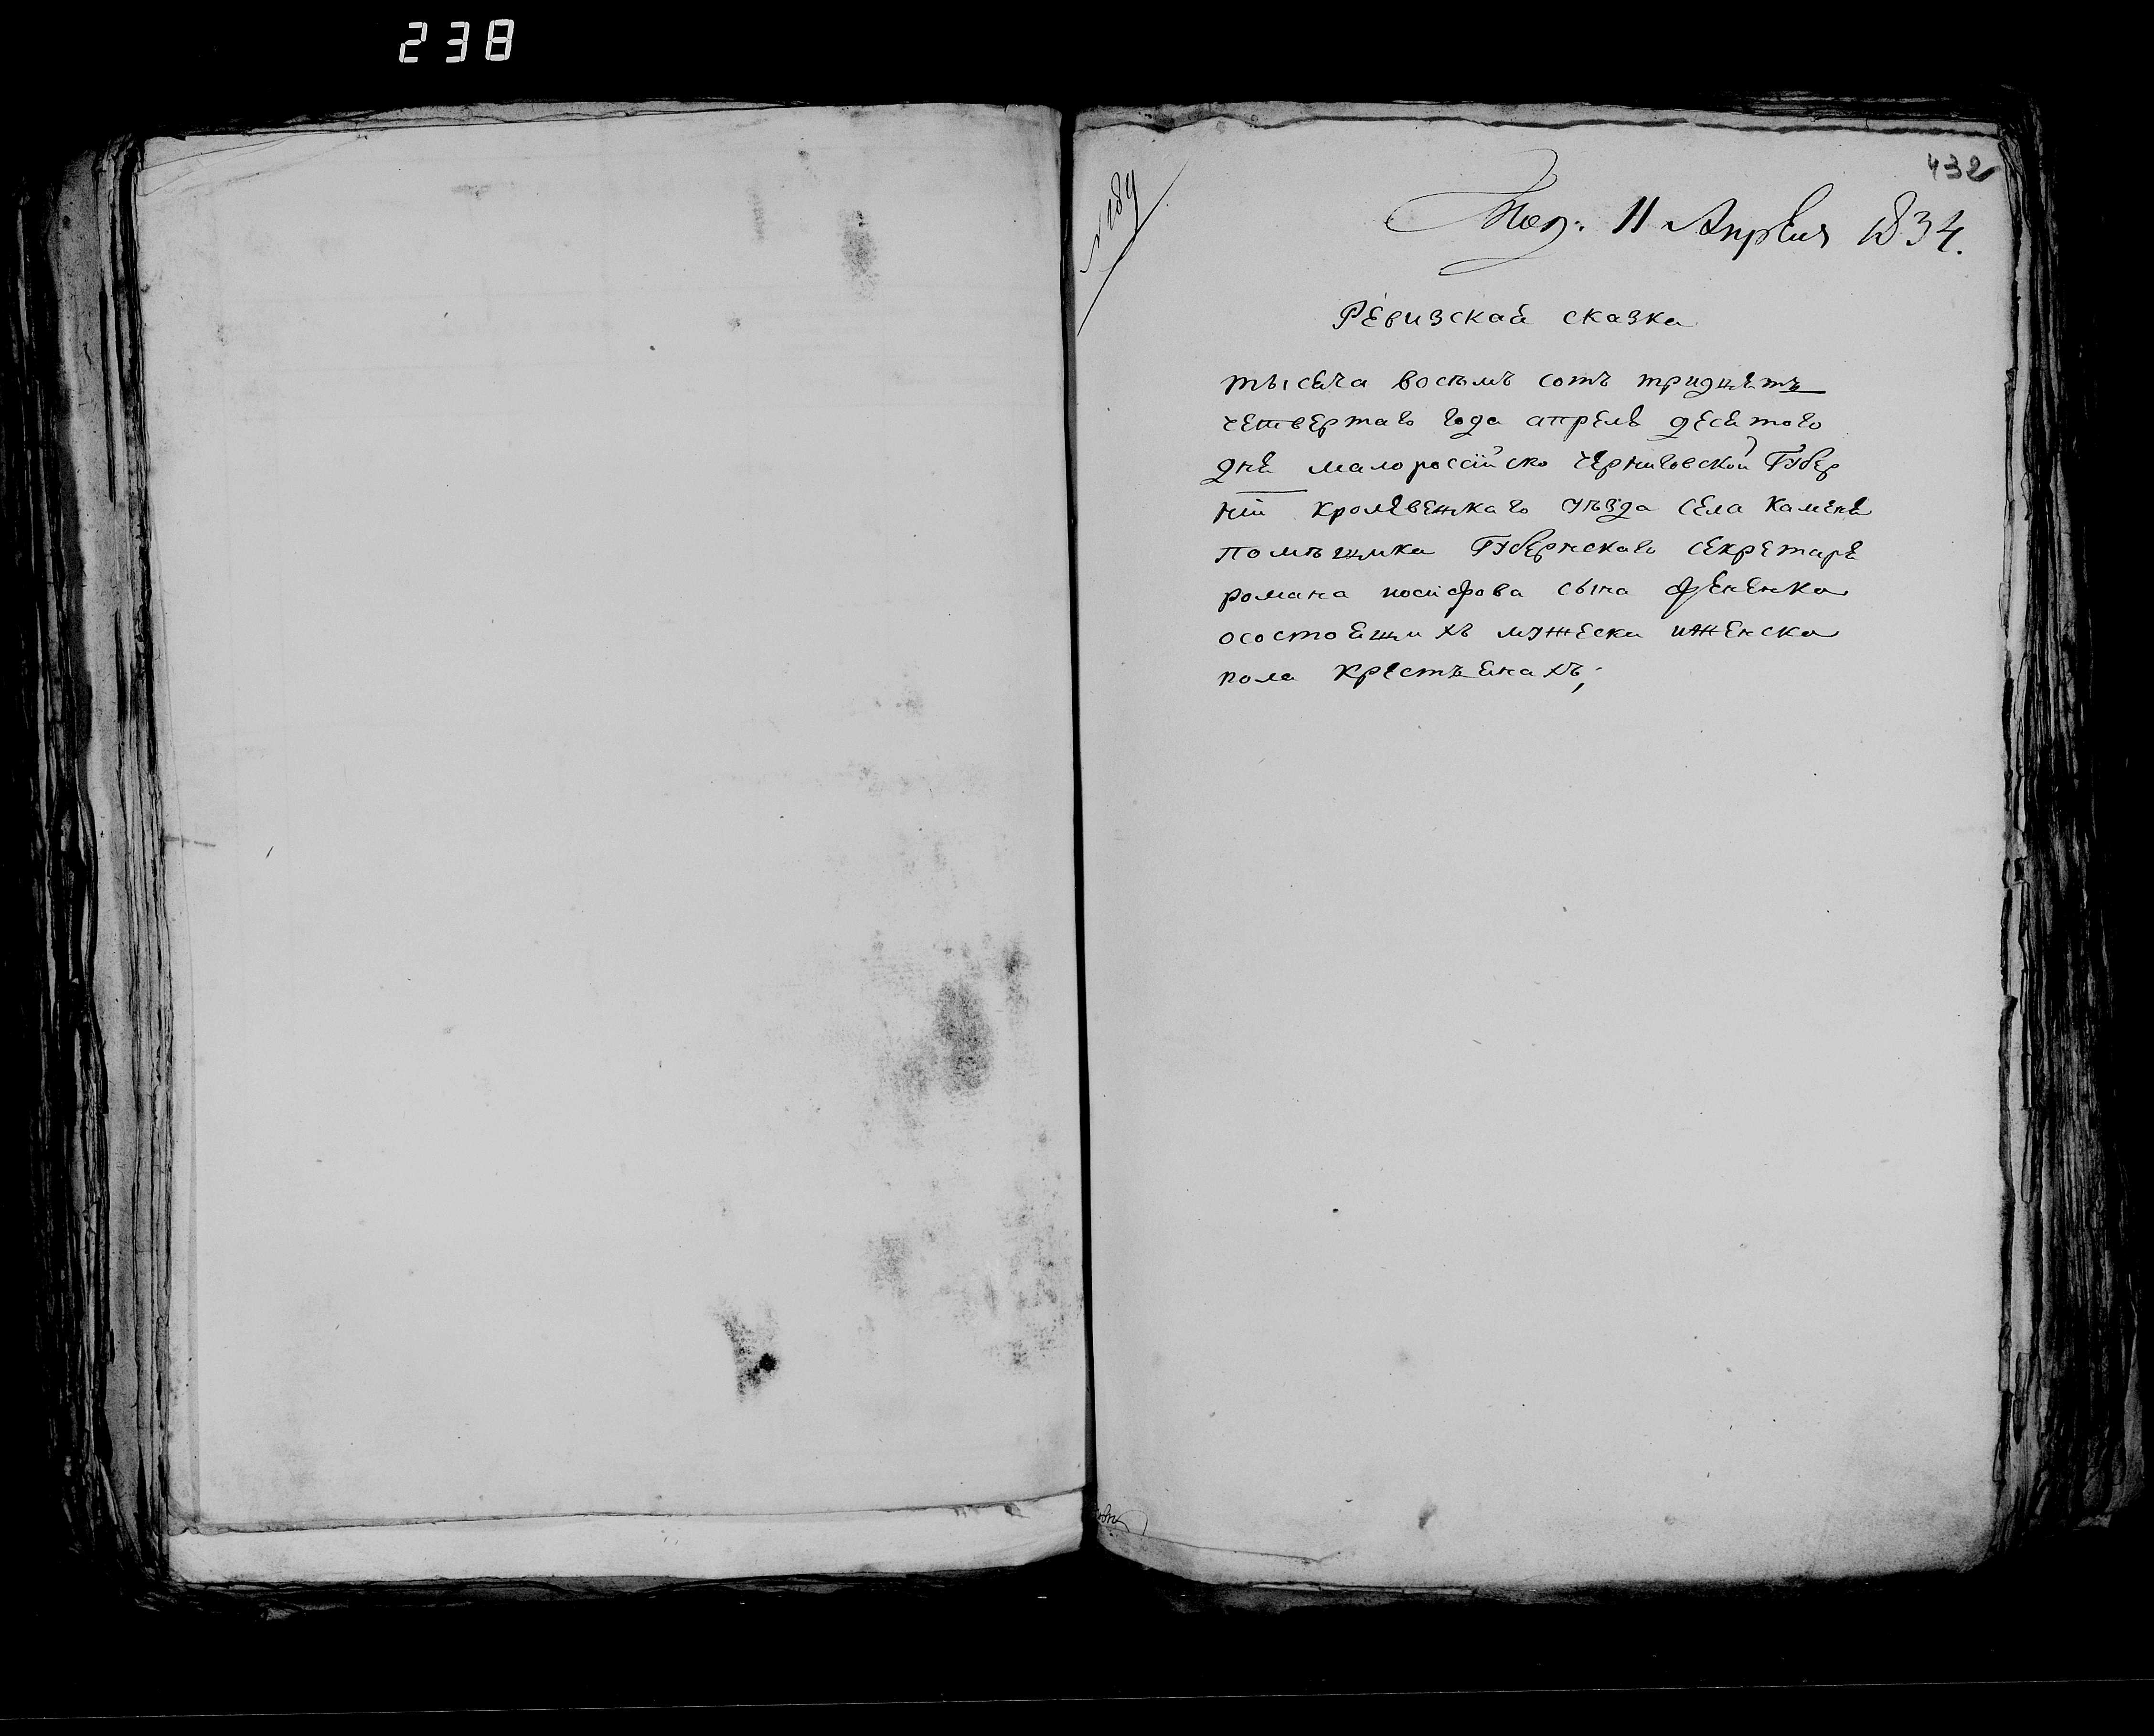 238
432
№ 189
Пол: 11 Апреля 1834.
Ревизская сказка
тысяча восемь сотъ тридцять
четвертаго года апреля десятого
дня малороссійско черниговской Губер
ніи кролевецкаго уѣзда села каменя
помѣщика Губернскаго секретаря
романа иосифова сына фененка
осостоящихъ мужеска иженска
пола крестьянахъ;